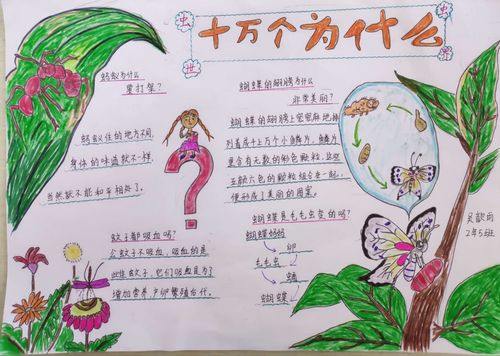 十万个为什么
虫
世
虫
界
蚂蚁为什么
要打架?
蚂蚁住的地方不同,
身体的味道就不一样,
当然就不能和平相处了。
蚊子都吸血吗?
公蚊子不吸血,吸血的是
雌性蚊子,它们吸血是为了
增加营养,产卵繁殖后代。
蝴蝶的翅膀为什么
非常美丽?
蝴蝶的翅膀上密密麻地排
列着成千上万个小鳞片,鳞片
里含有无数的彩色颗粒,这些
五颜六色的颗粒组合在一起,
便形成了美丽的图案。
蝴蝶是毛毛虫变的吗?
蝴蝶妈妈
卵
毛毛虫
蛹
蝴蝶
2年5班